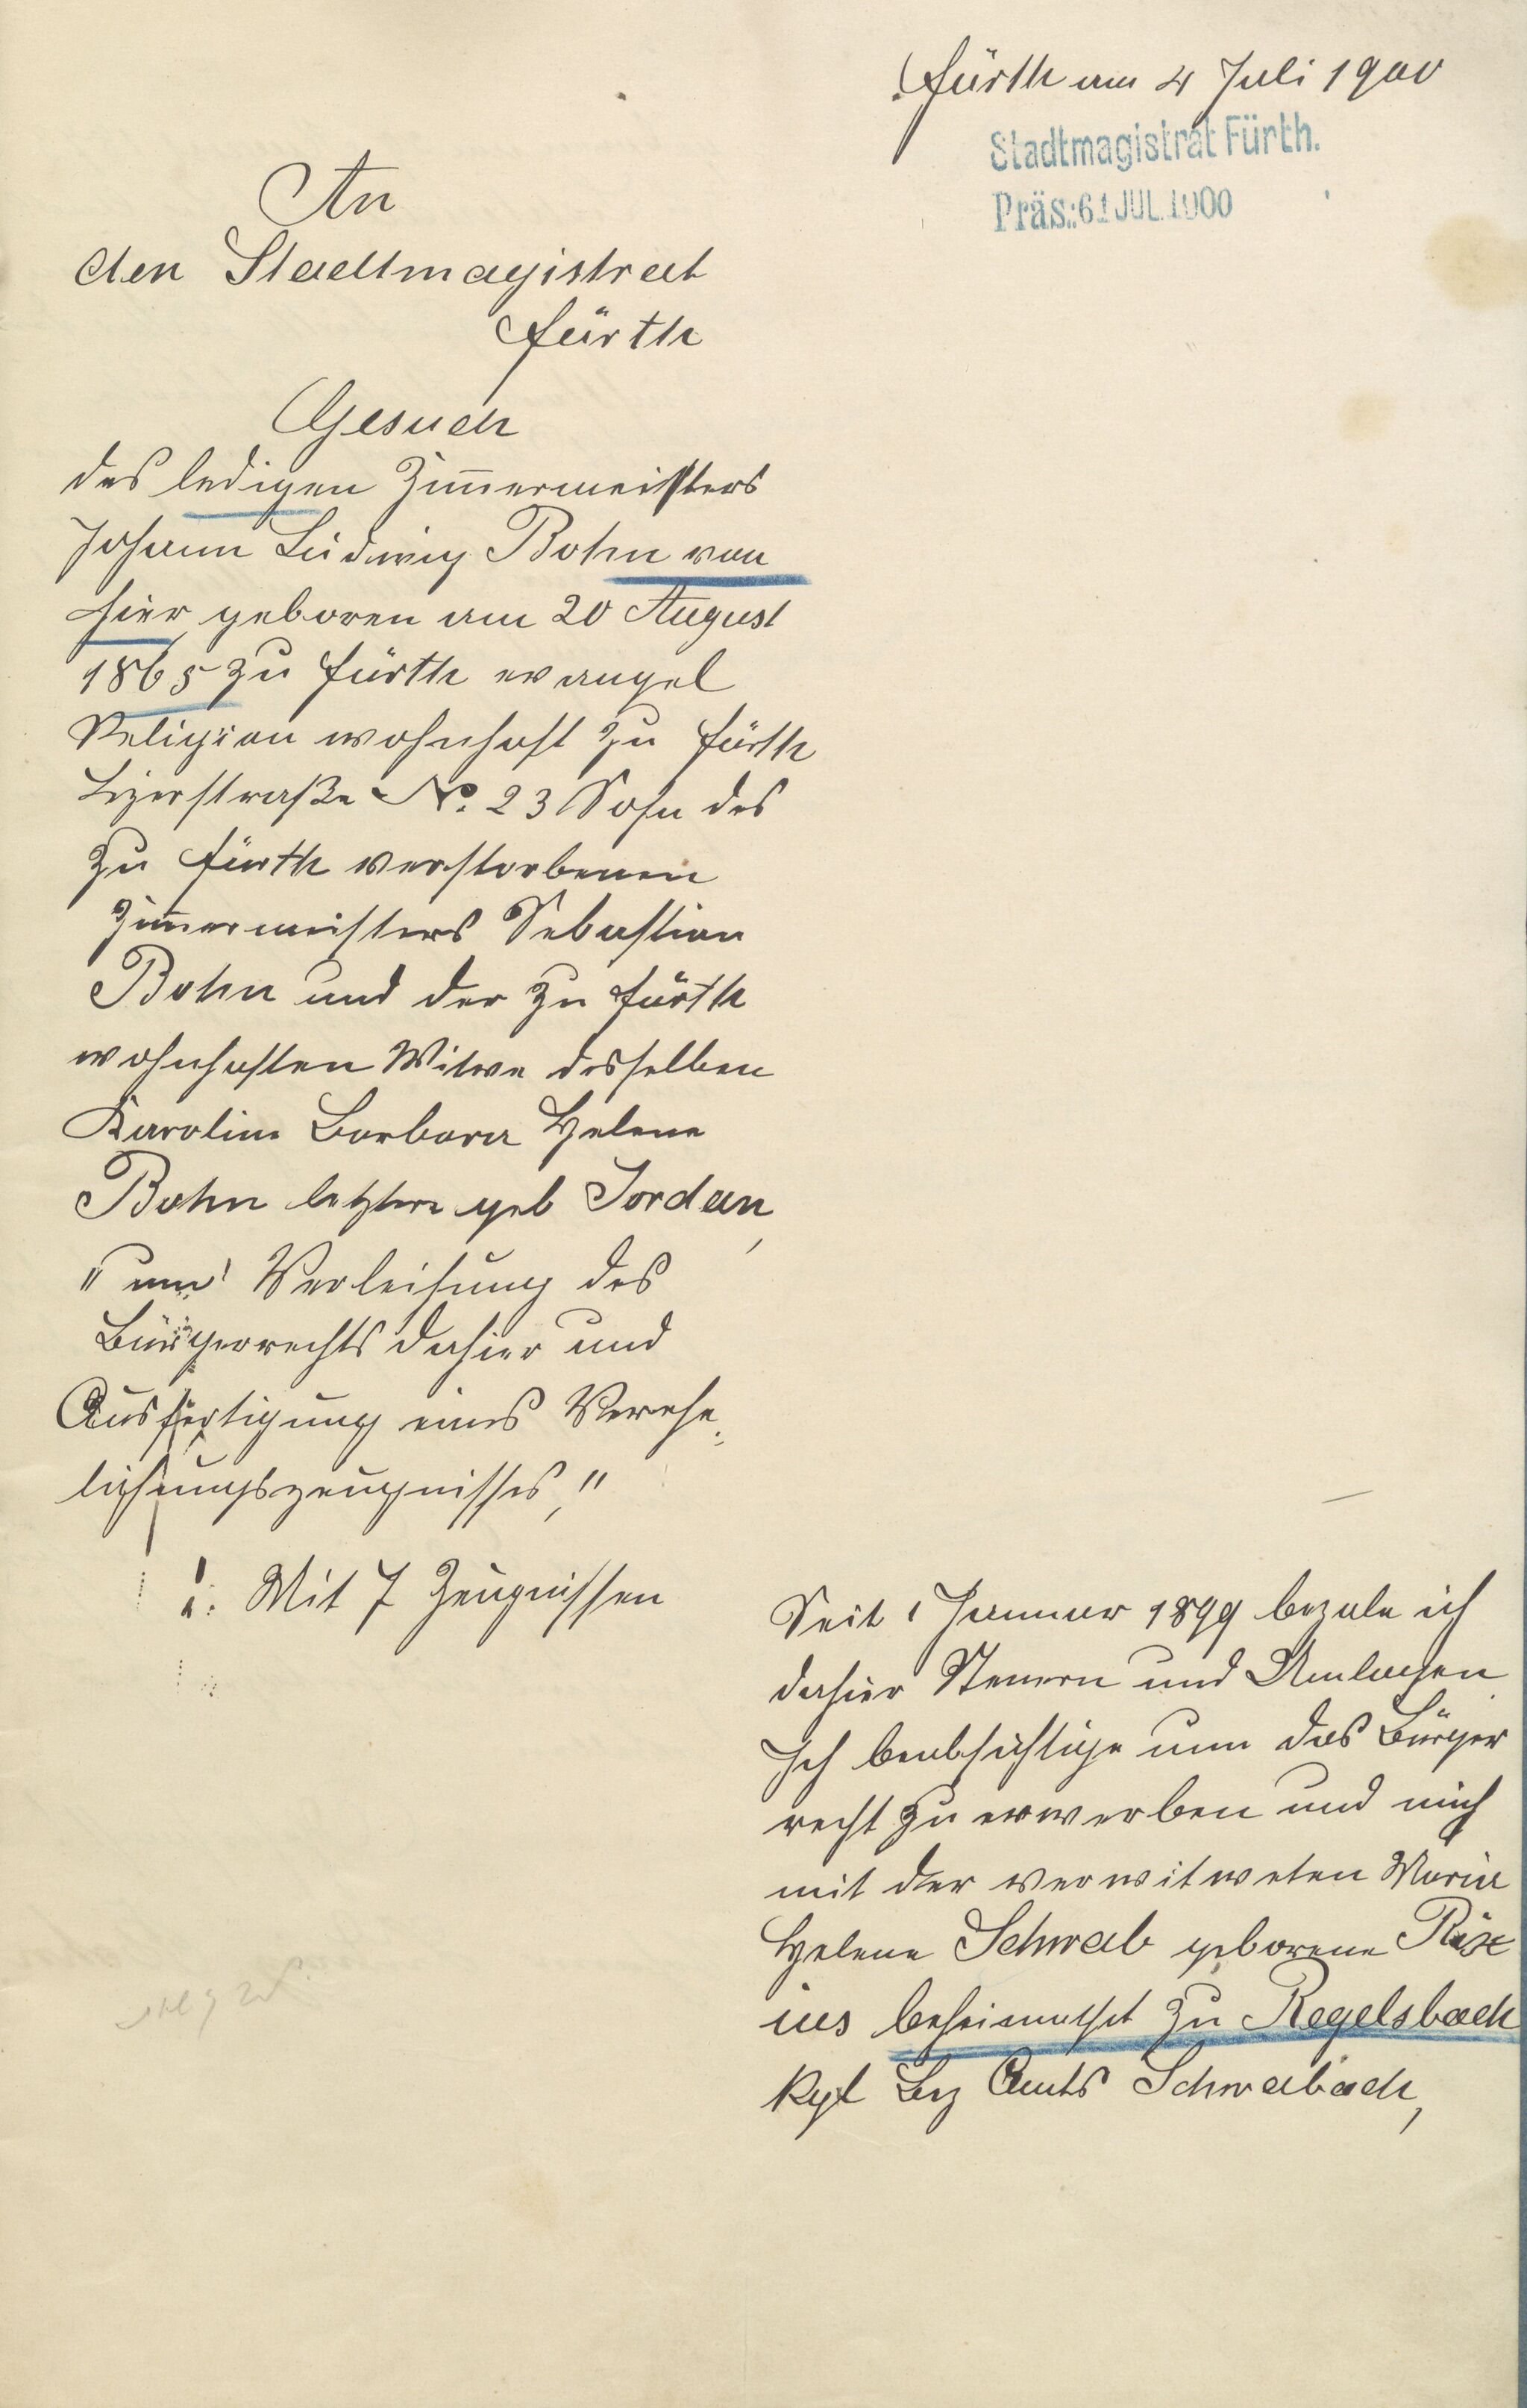 Fürth am 4 Juli 1900
Stadtmagistrat Fürth.
Präs.: JUL. 1900
An
den Stadtmagistrat
Fürth
Gesuch
des ledigen Zim̅ermeisters
Johann Ludwig Bohn von
hier, geboren am 20 August
1865 zu Fürth evangel
Religion wohnhaft zu Fürth
No. 23 Sohn des
zu Fürth verstorbenen
Zim̅ermeisters Sebastian
Bohn und der zu Fürth
wohnhaften Witwe desselben
Karoline Barbara Helene
Bohn letztere geb Jordan,
"um" Verleihung des
Bürgerrechts dahier und
Ausfertigung eines Verehe-
lichungszeugnisses,"
Mit 7 Zeugnissen
Seit 1 Januar 1899 bezale ich
dahier Steuern und Umlagen
Ich beabsichtige nun das Bürger
recht zu erwerben und mich
mit der verwitweten Maria
Helene Schwab geborene Rix
ius beheimathet zu Regelsbach
kgl Bez Amts Schwabach,